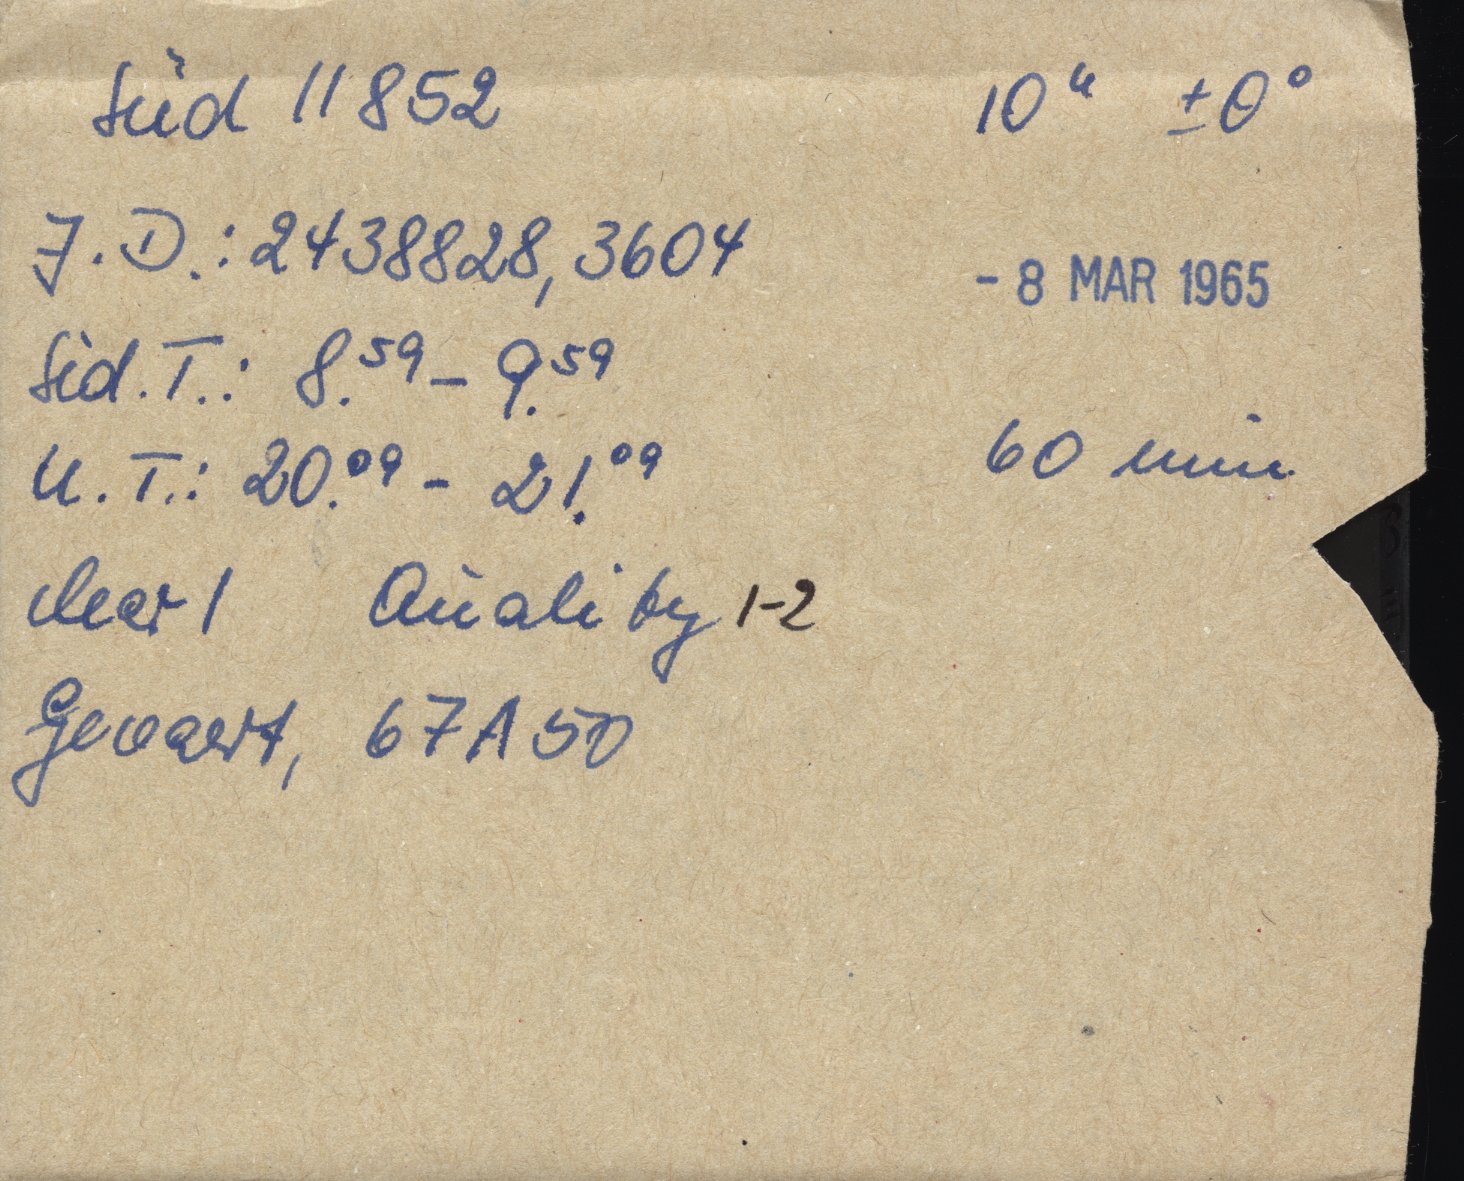 Süd 11852 10ʰ ±0°
J.D.: 2438828,3604
- 8 MAR 1965
Sid.T.: 8.⁵⁹ – 9.⁵⁹
U.T.: 20.⁰⁹ – 21.⁰⁹
60 min
clear 1 Quality 1-2
Gevaert, 67A50